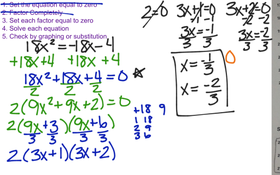 1. Set the equation equal to zero
2. Factor Completely
3. Set each factor equal to zero
4. Solve each equation
5. Check by graphing or substitution
18x² = -18x - 4
+18x +4 18x +4
18x² + 18x + 4 = 0
2 2 2
2(9x² + 9x + 2) = 0
2(9x + 3)(9x + 6)
3 3 3 3
2(3x+1)(3x+2)
+18 9
1 18
2 9
3 6
2≠0 3x+1=0 3x+2=0
-1 -1 -2 -2
3x = -1 3x = -2
3 3 3 3
x = -1/3
x = -2/3
0